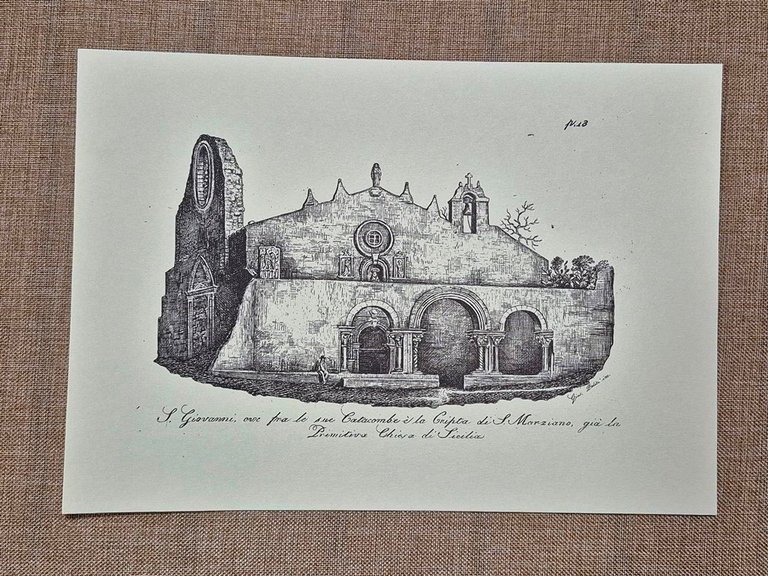 N.18
S. Giovanni, ove fra le sue Catacombe è la Cripta di S. Marziano, già la
Primitiva Chiesa di Sicilia